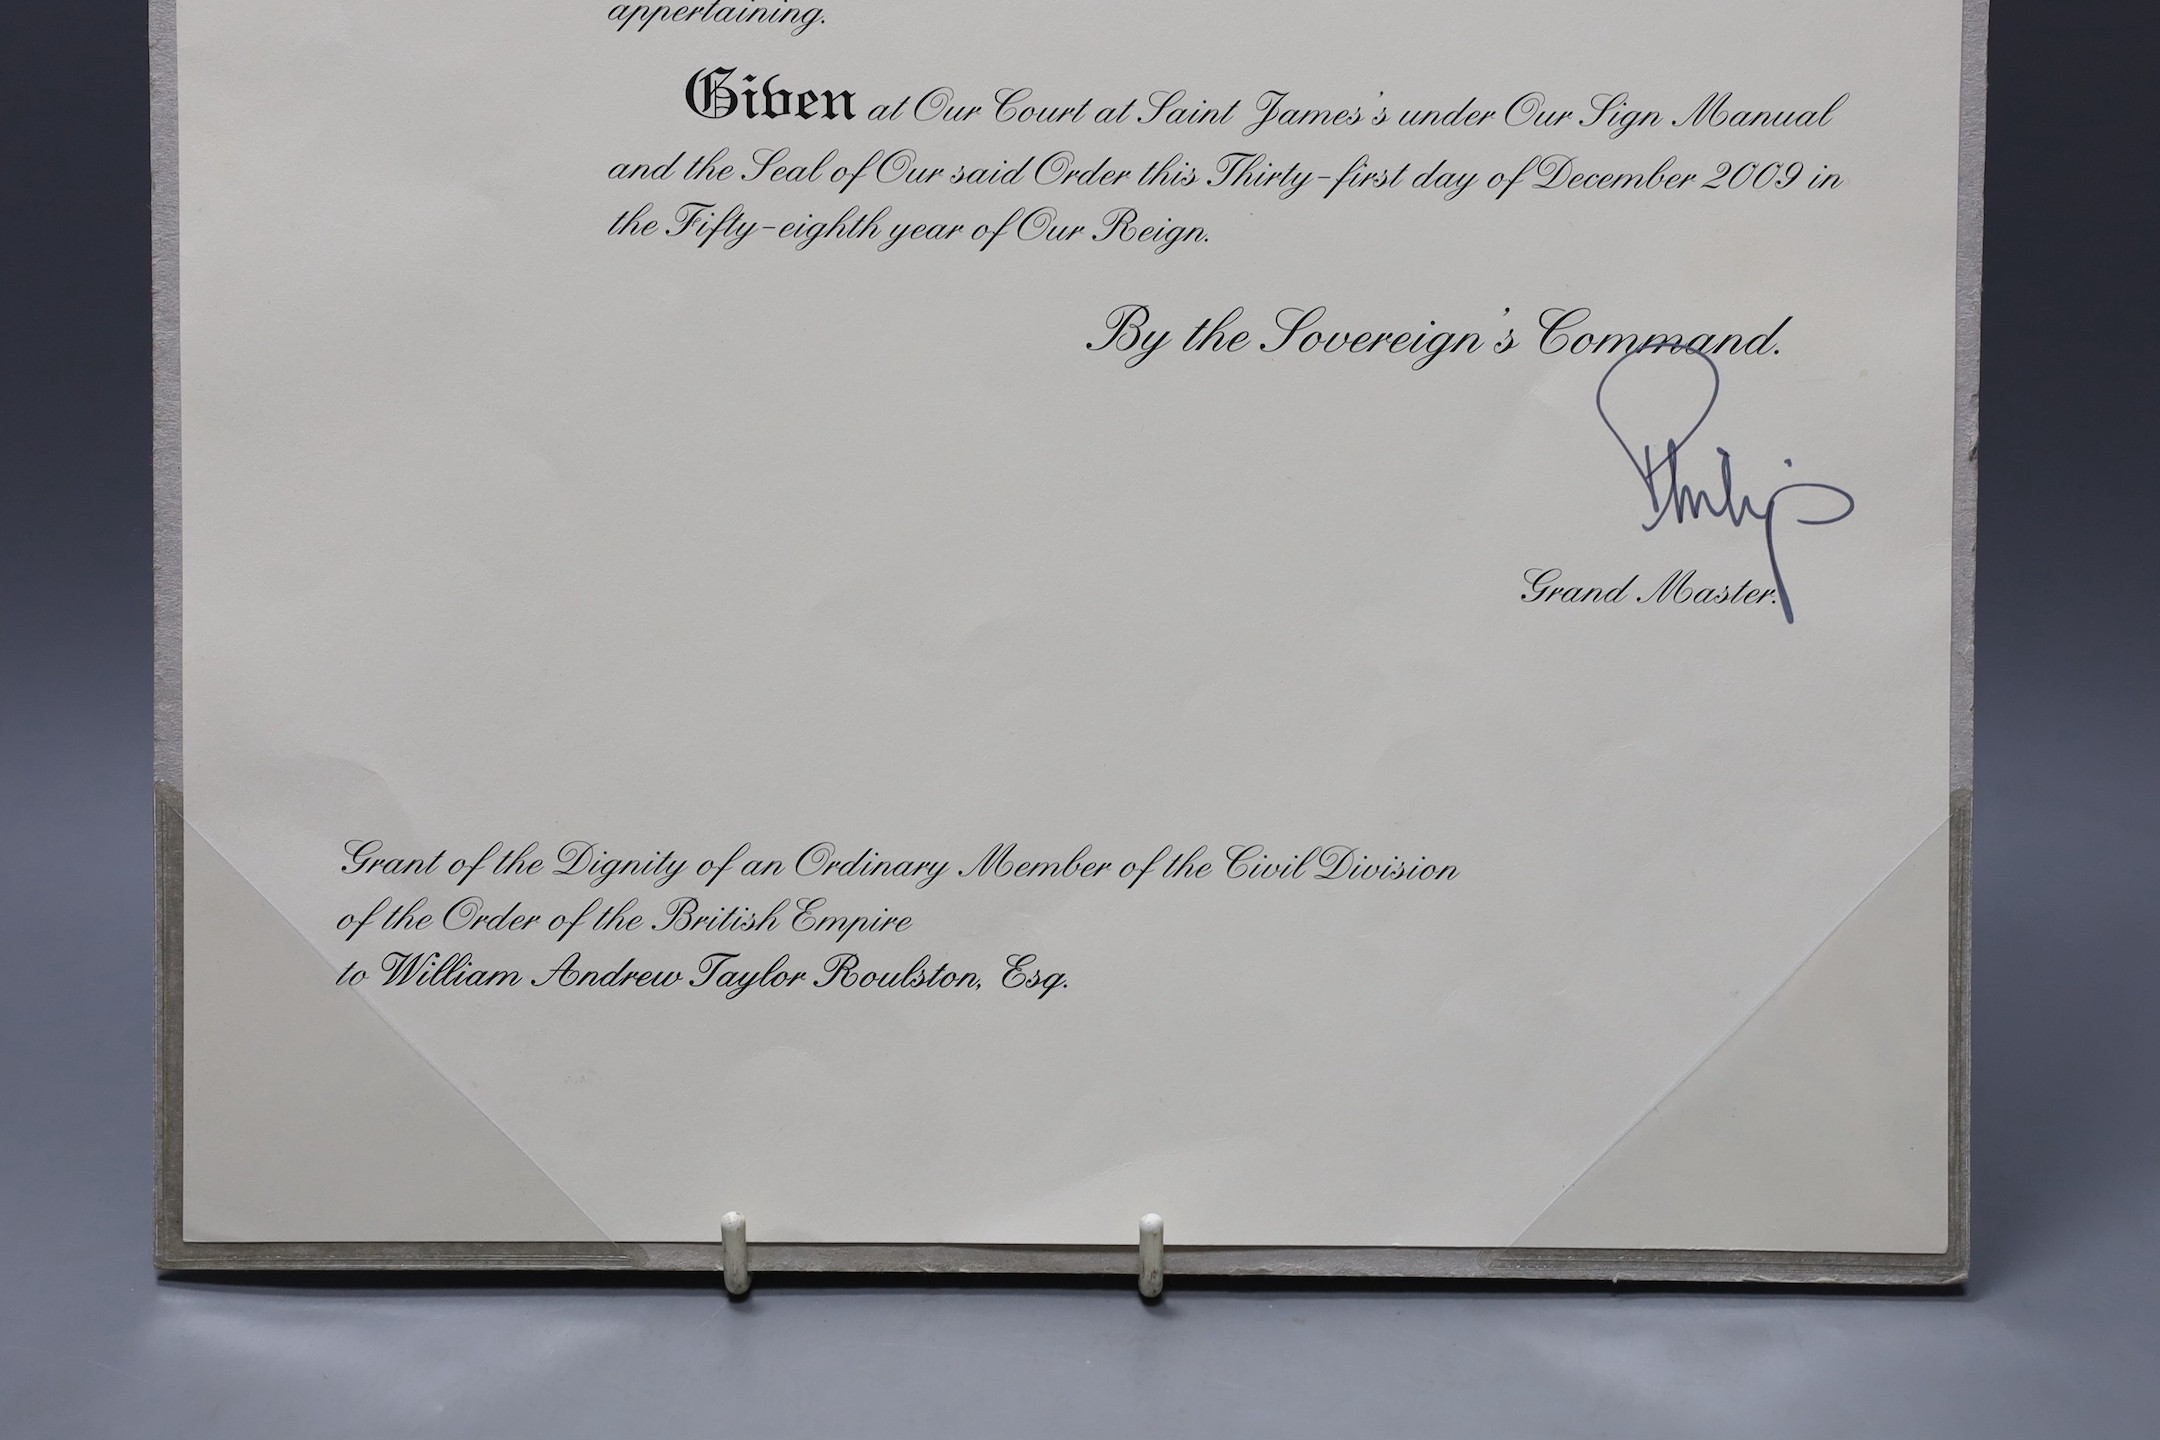 appertaining.
Given at Our Court at Saint James's under Our Sign Manual
and the Seal of Our said Order this Thirty-first day of December 2009 in
the Fifty-eighth year of Our Reign.
By the Sovereign's Command.
Philip
Grand Master.
Grant of the Dignity of an Ordinary Member of the Civil Division
of the Order of the British Empire
to William Andrew Taylor Roulston, Esq.